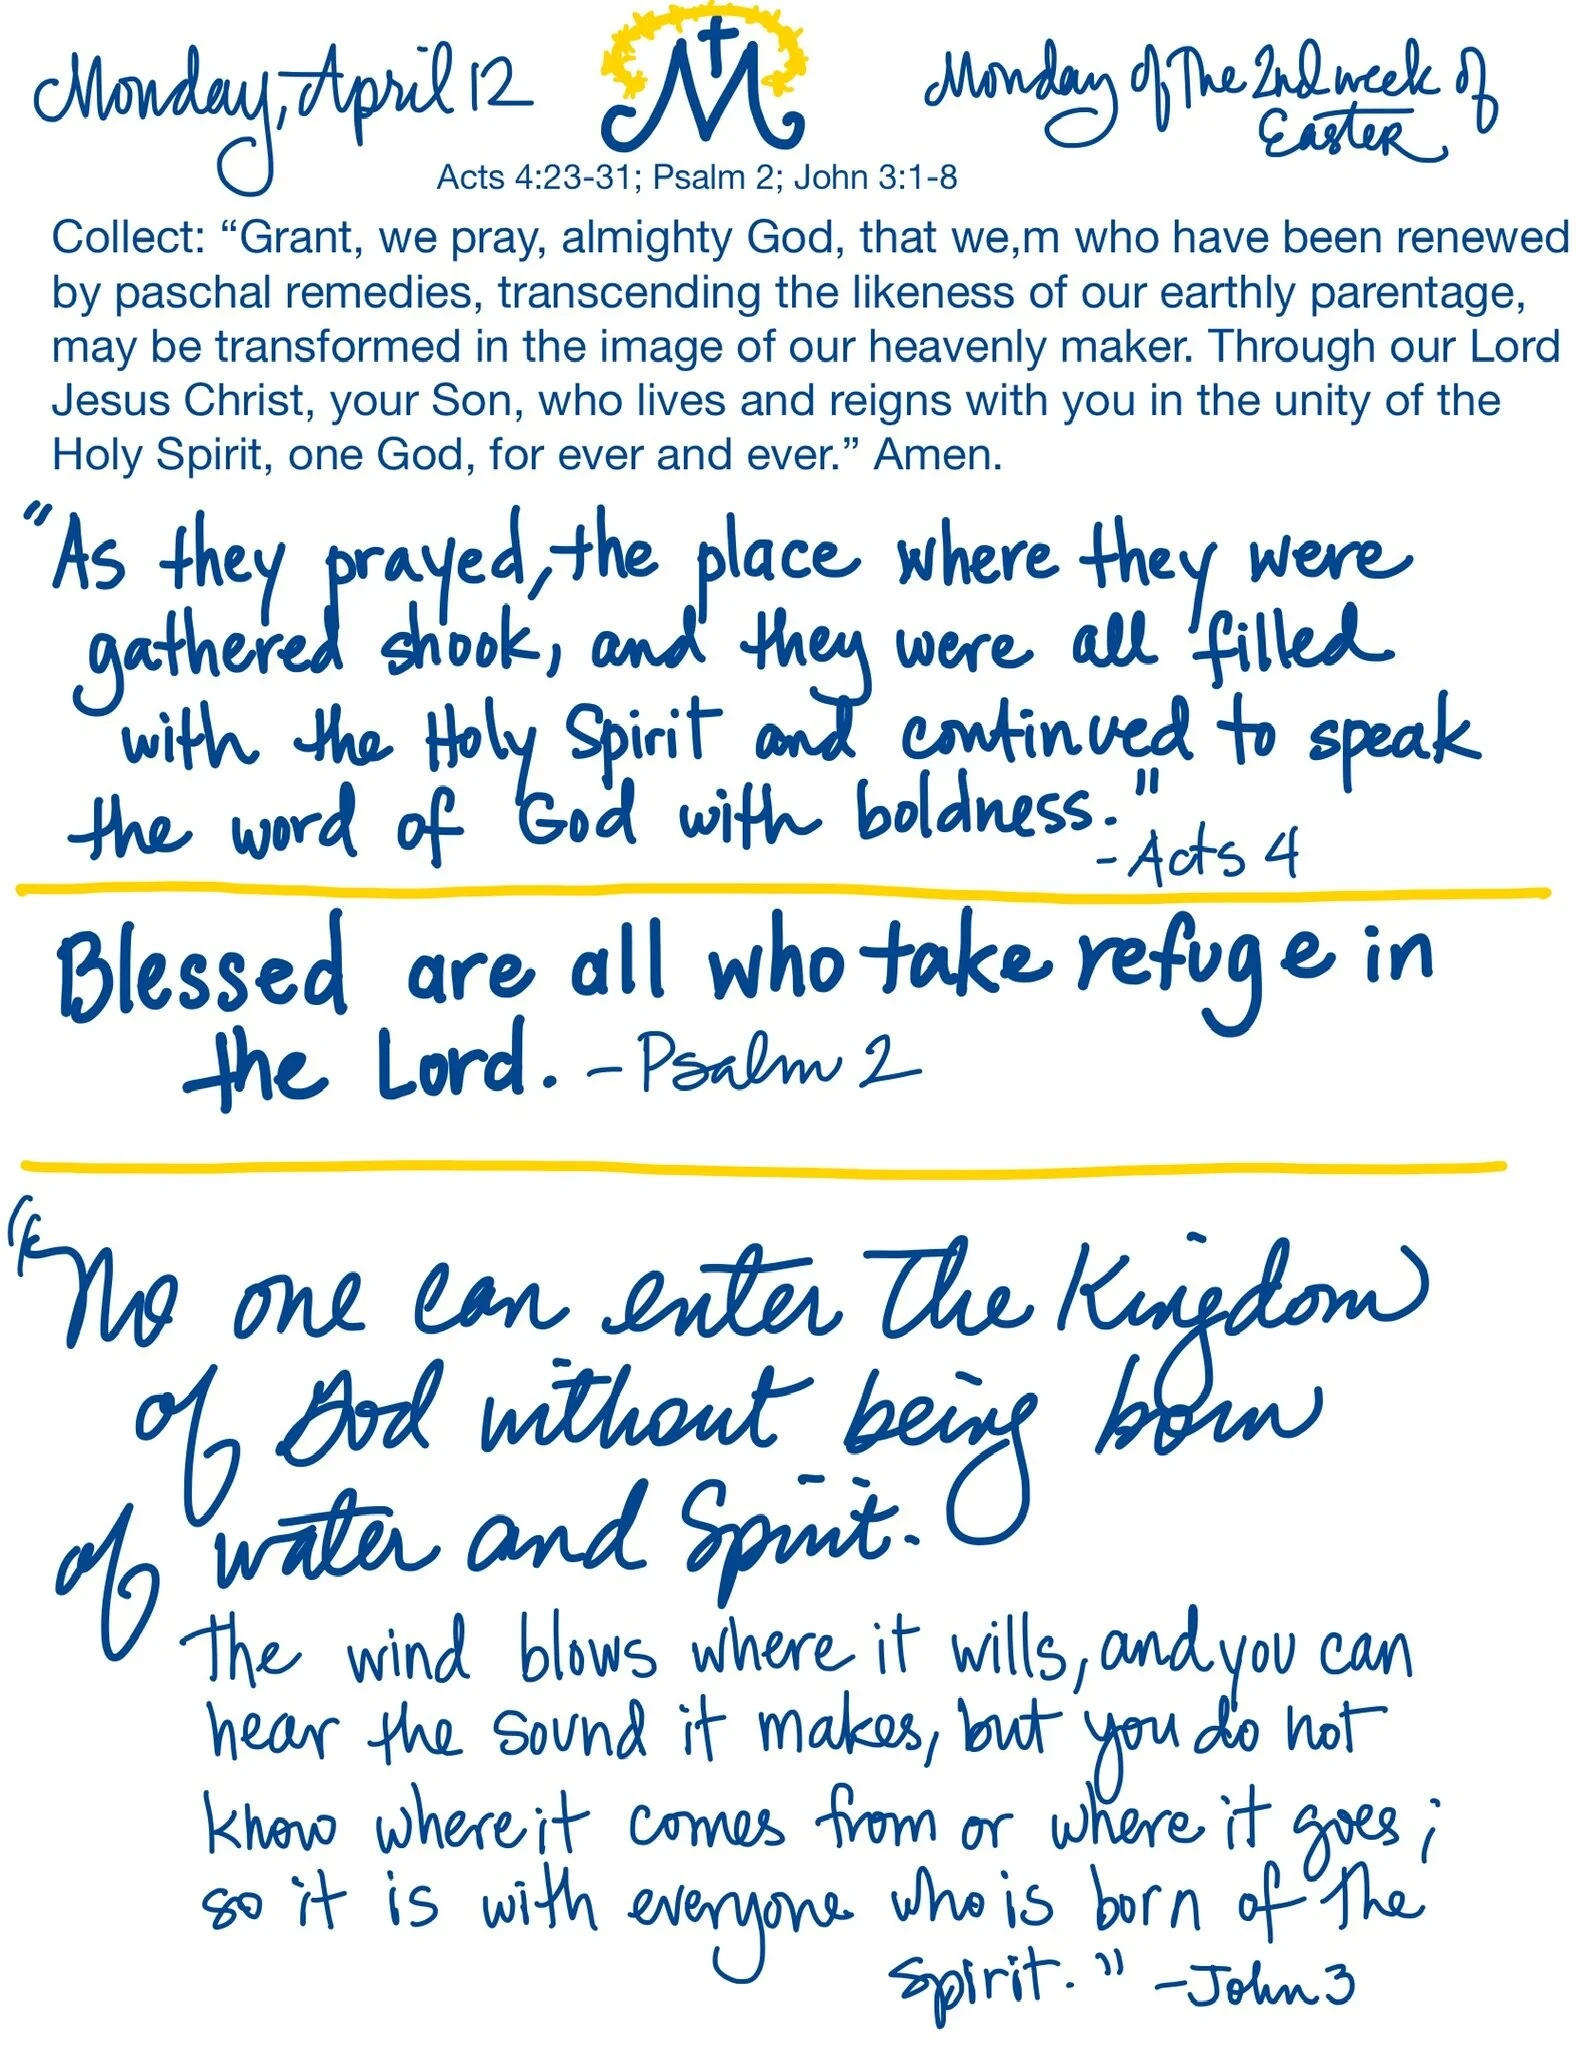 Monday, April 12
Monday of The 2nd week of
Easter
Acts 4:23-31; Psalm 2; John 3:1-8
Collect: “Grant, we pray, almighty God, that we,m who have been renewed
by paschal remedies, transcending the likeness of our earthly parentage,
may be transformed in the image of our heavenly maker. Through our Lord
Jesus Christ, your Son, who lives and reigns with you in the unity of the
Holy Spirit, one God, for ever and ever.” Amen.
"As they prayed, the place where they were
gathered shook, and they were all filled
with the Holy Spirit and continued to speak
the word of God with boldness."
- Acts 4
Blessed are all who take refuge in
the Lord. - Psalm 2
"No one can enter The Kingdom
of God without being born
of water and Spirit.
The wind blows where it wills, and you can
hear the sound it makes, but you do not
know where it comes from or where it goes;
so it is with everyone who is born of The
Spirit." - John 3